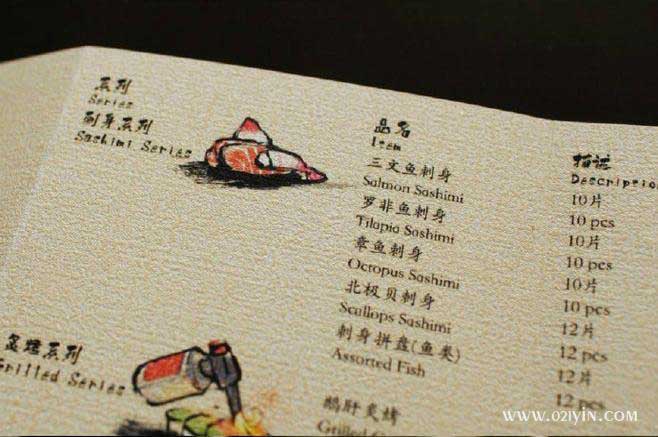 系列
Series
刺身系列
Sashimi Series
品名
Item
三文鱼刺身
Salmon Sashimi
罗非鱼刺身
Tilapia Sashimi
章鱼刺身
Octopus Sashimi
北极贝刺身
Scallops Sashimi
刺身拼盘(鱼类)
Assorted Fish
鹅肝炙烤
Grilled
描述
Description
10片
10 pcs
10片
10 pcs
10片
10 pcs
12片
12 pcs
12片
12 pcs
炙烧系列
Grilled Series
WWW.021YIN.COM